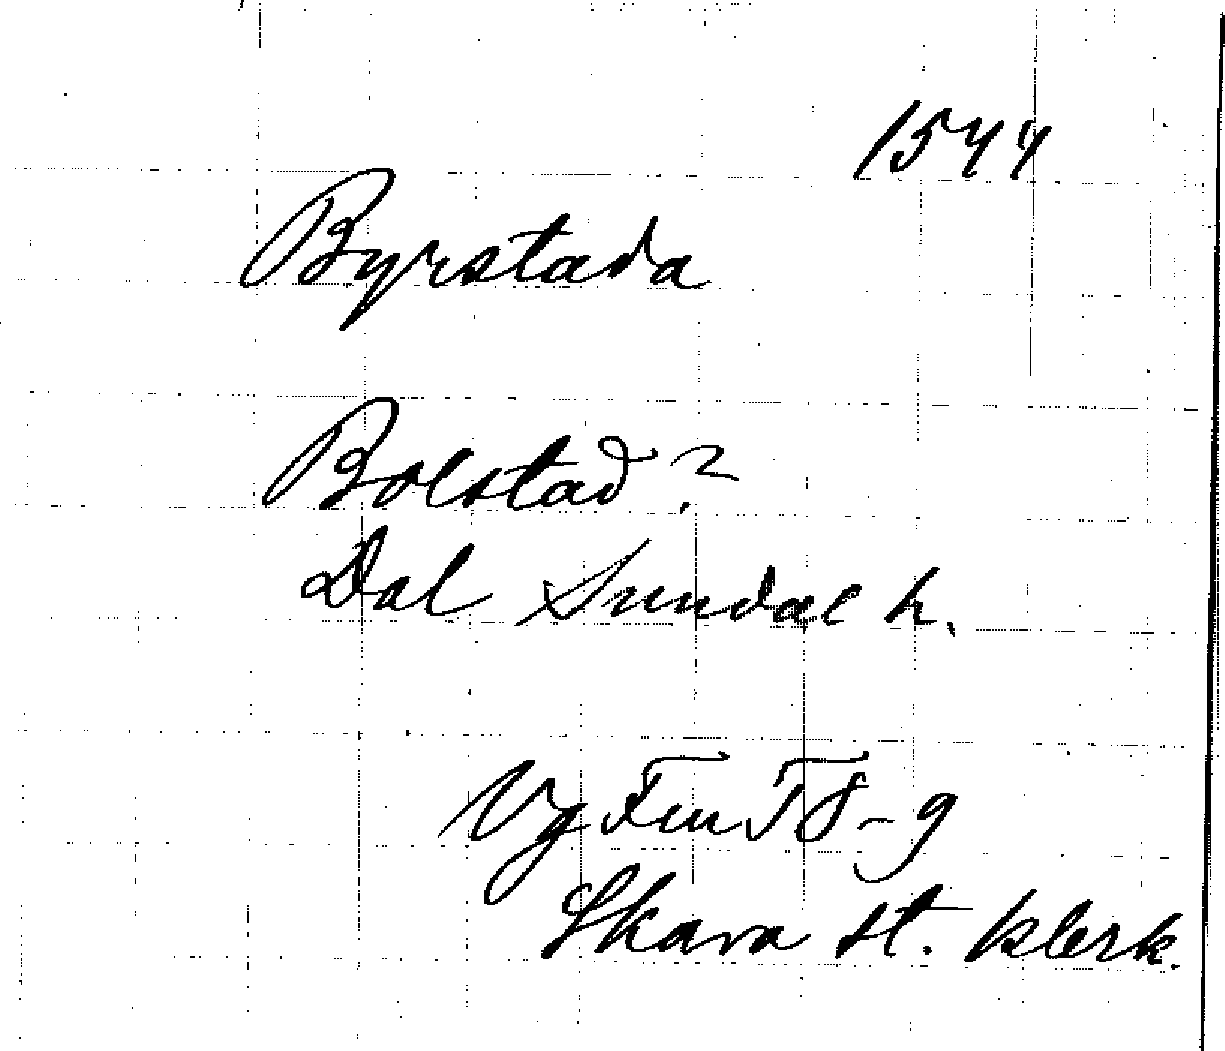 1544
Byrstada
Bolstad?
Dal Sundal h.
Vg Fem T 8-9
Skara st. klerk.